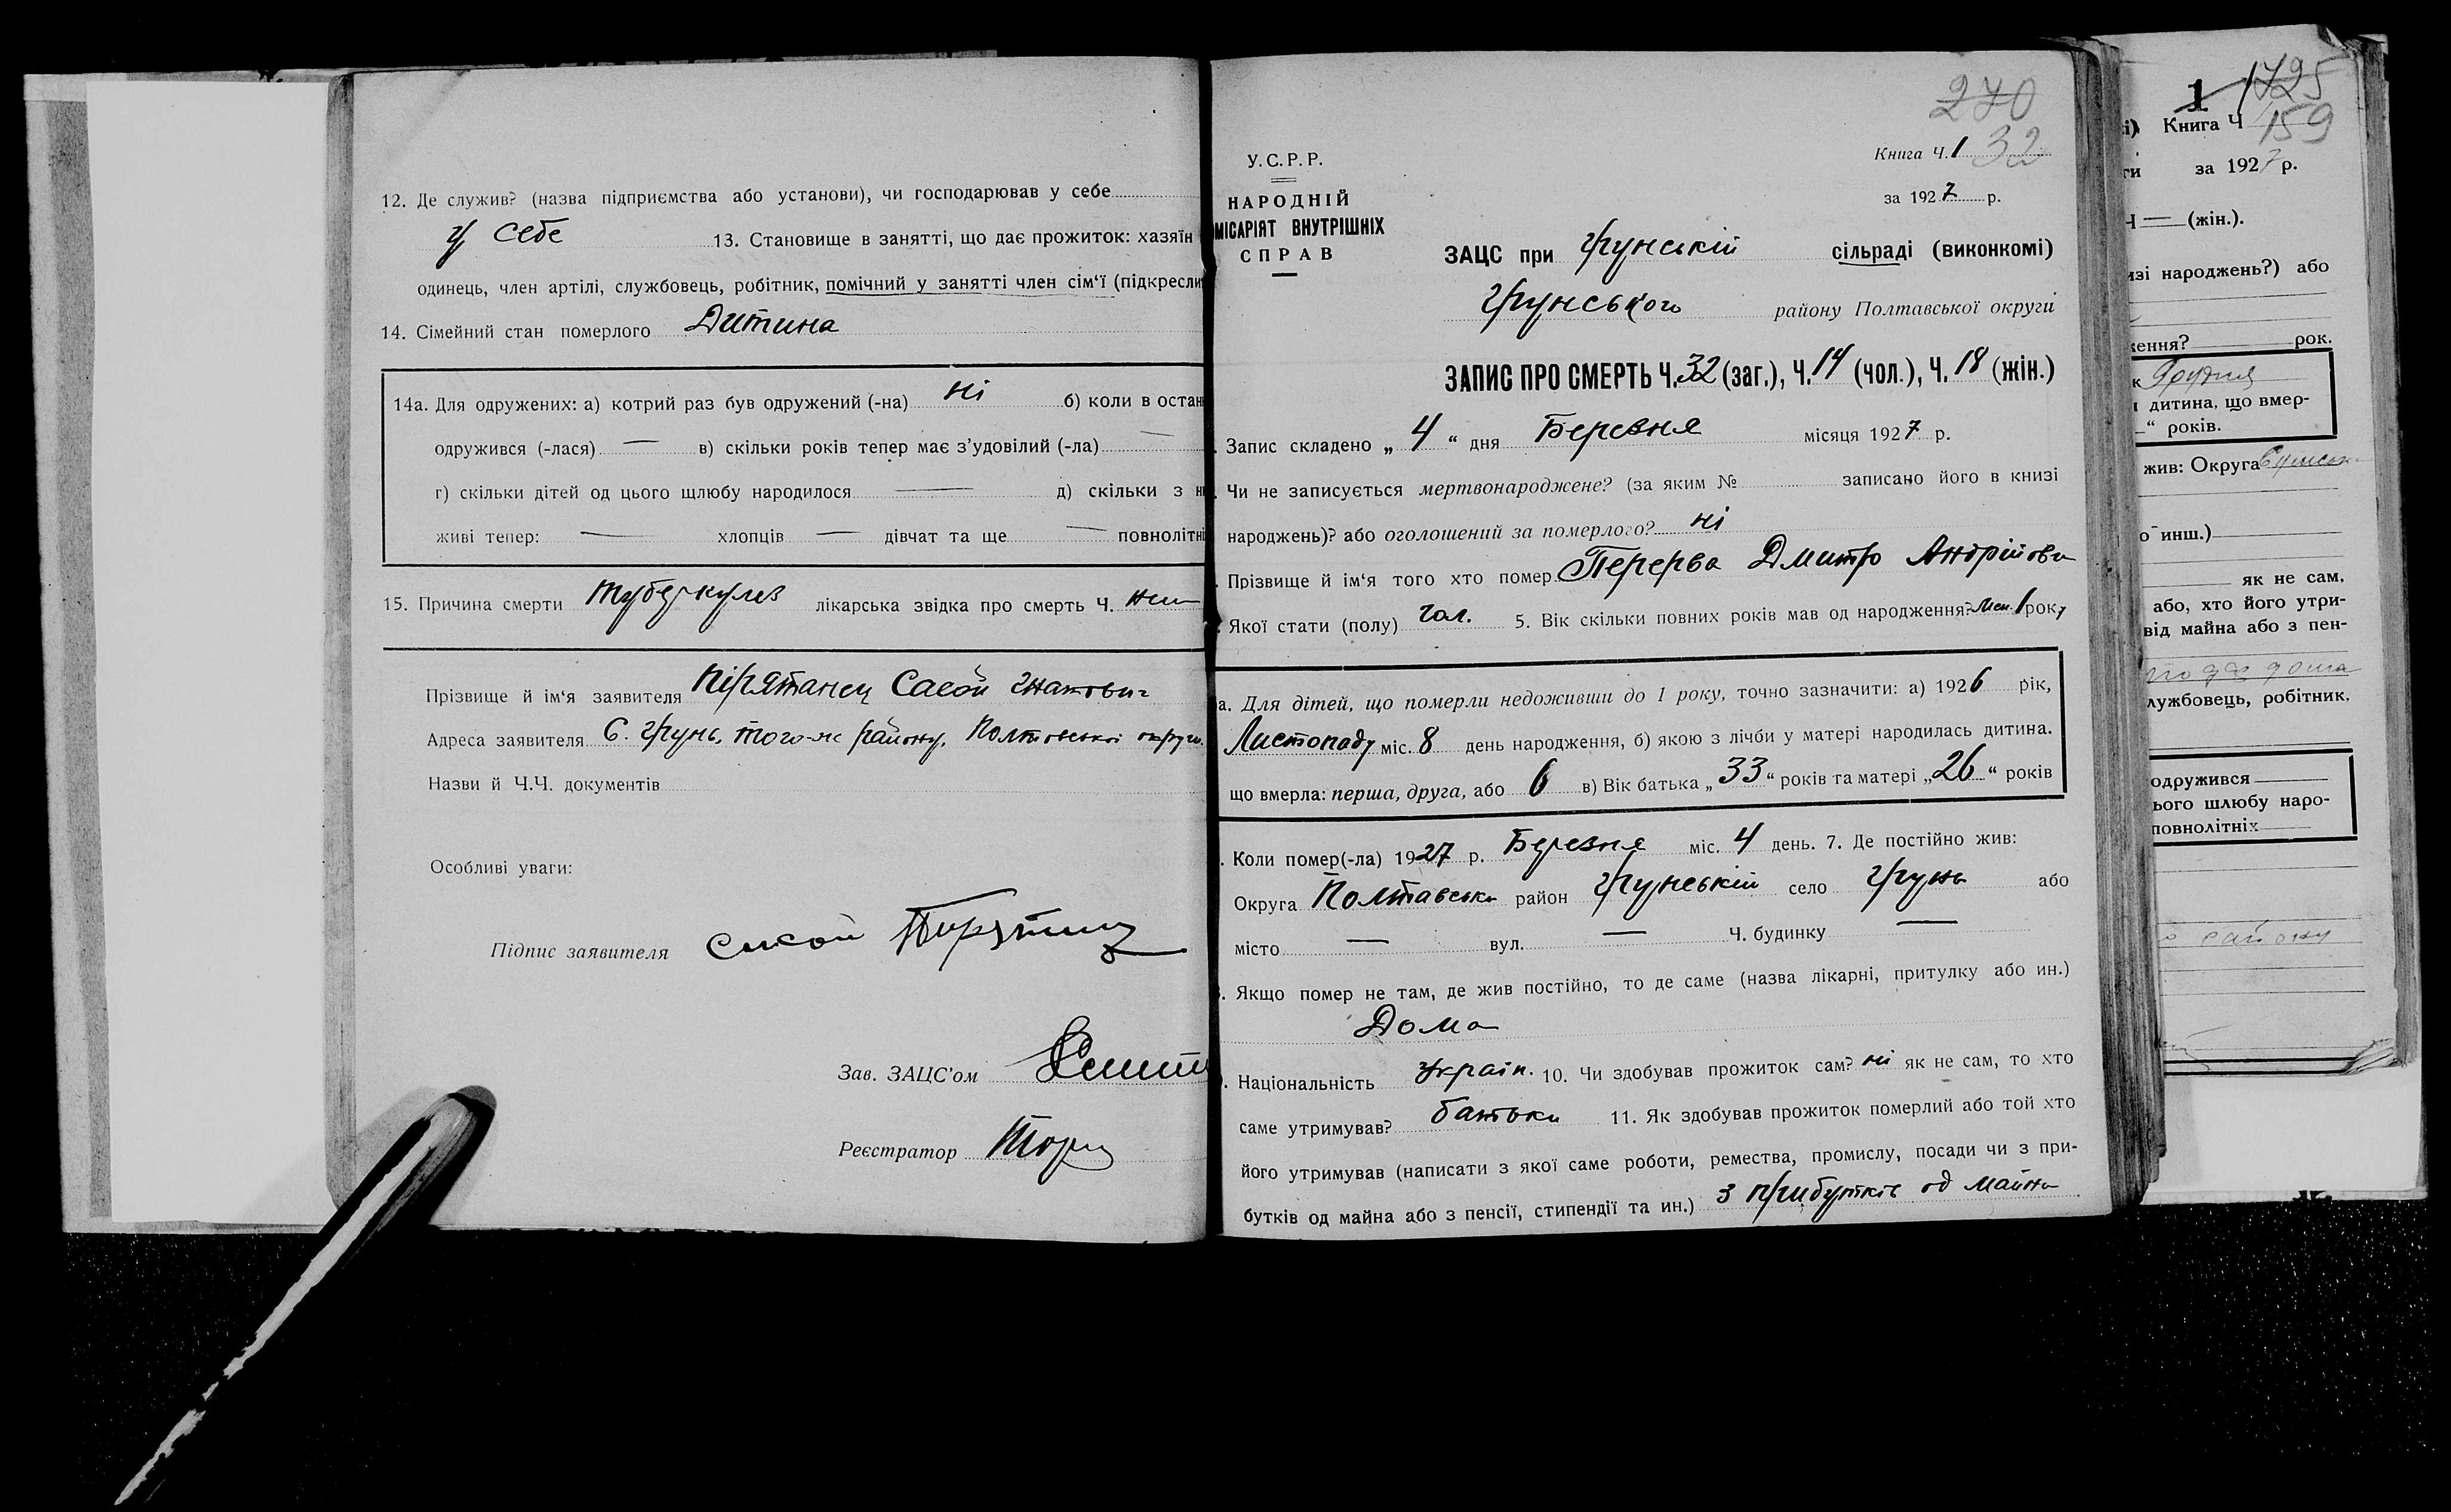 12. Де служив? (назва підприємства або установи), чи господарював у себе
У себе 13. Становище в занятті, що дає прожиток: хазяїн
одинець, член артілі, службовець, робітник, помічний у занятті член сім'ї (підкресли
14. Сімейний стан померлого Дитина
14а. Для одружених: а) котрий раз був одружений (-на) ні б) коли в остан
одружився (-лася) — в) скільки років тепер має з'удовілий (-ла) —
г) скільки дітей од цього щлюбу народилося — д) скільки з н
живі тепер: — хлопців — дівчат та ще — повнолітні
15. Причина смерти туберкульоз лікарська звідка про смерть Ч.
Прізвище й ім'я заявителя Пірятанец
Адреса заявителя С. Грунь, того-ж району, Полтавської округи.
Назви й Ч.Ч. документів
Особливі уваги:
Підпис заявителя
Зав. ЗАЦС'ом
Реєстратор
270
У.С.Р.Р.
Книга Ч. 1 32
НАРОДНІЙ
МІСАРІЯТ ВНУТРІШНІХ
СПРАВ
за 1927 р.
ЗАЦС при Грунській сільраді (виконкомі)
Грунського району Полтавської округи
ЗАПИС ПРО СМЕРТЬ Ч. 32 (заг.), Ч. 14 (чол.), Ч. 18 (жін.)
Запис складено „ 4 “ дня Березня місяця 1927 р.
Чи не записується мертвонароджене? (за яким № записано його в книзі
народжень)? або оголошений за померлого? ні
Прізвище й ім'я того хто помер Перерва Дмитро Андрійови
Якої стати (полу) чол. 5. Вік скільки повних років мав од народження? Мен. 1 року
а. Для дітей, що померли недоживши до 1 року, точно зазначити: а) 1926 рік,
Листопаду міс. 8 день народження, б) якою з лічби у матері народилась дитина.
що вмерла: перша, друга, або 6 в) Вік батька „ 33 “ років та матері „ 26 “ років
Коли помер(-ла) 1927 р. Березня міс. 4 день. 7. Де постійно жив:
Округа Полтавська район Грунській село Грунь або
місто — вул. — Ч. будинку —
Якщо помер не там, де жив постійно, то де саме (назва лікарні, притулку або ин.)
Дома
Національність Україн. 10. Чи здобував прожиток сам? ні як не сам, то хто
саме утримував? батьки 11. Як здобував прожиток померлий або той хто
його утримував (написати з якої саме роботи, ремества, промислу, посади чи з при-
бутків од майна або з пенсії, стипендії та ин.) з прибутків од майна
1 1725
Книга Ч 159
ги за 1927 р.
Ч — (жін.).
изі народжень?) або
ження? рок.
к Грудня
дитина, що вмер-
—“ років.
жив: Округа Сумськ
о инш.)
як не сам,
або, хто його утри-
від майна або з пен-
лужбовець, робітник,
одружився
ього шлюбу наро-
повнолітніх
району